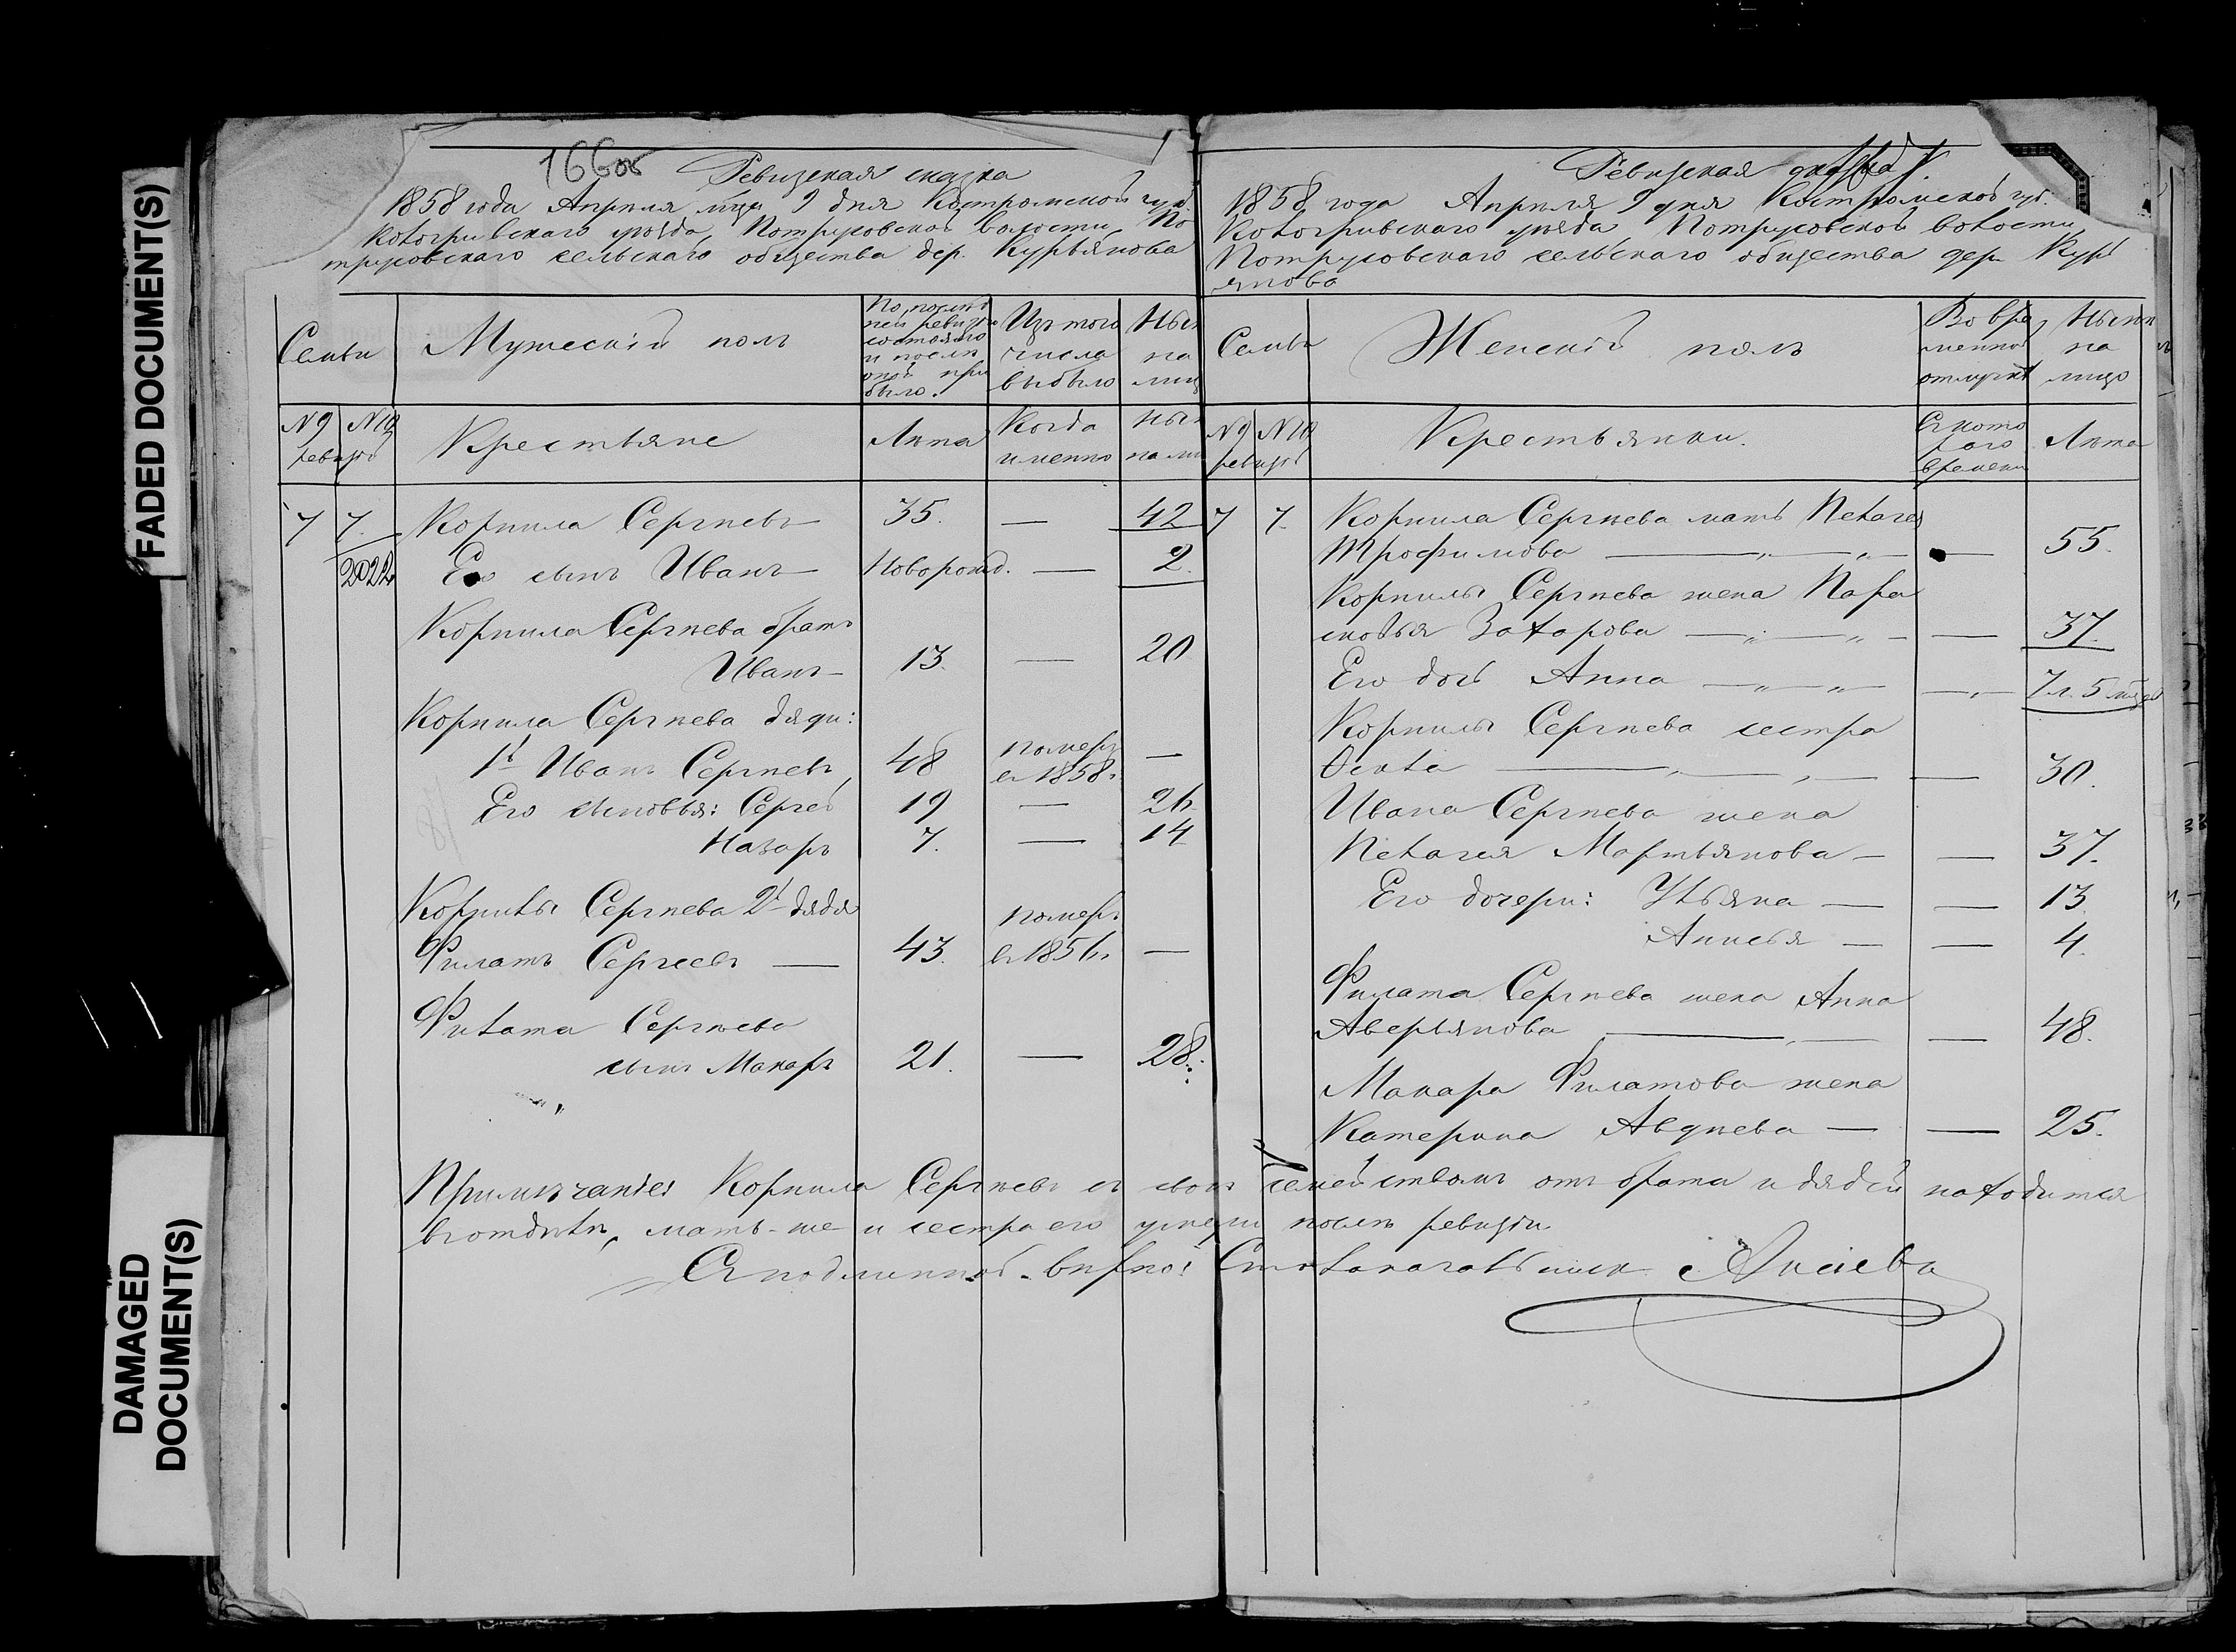 FADED DOCUMENT(S)
DAMAGED
DOCUMENT(S)
166об
Ревизская сказка
1858 года Апреля мца 9 дня Костромской губ.
Кологривскаго уезда, Потрусовской волости, По
трусовскаго сельскаго общества дер. Курьянова
Семьи
Мужескій полъ
По послѣд
ней ревизіи
состояло
и послѣ
оной при
было.
Изъ того
числа
выбыло
Нын
на
лиц
№ 9 № 10
ревизіи
Крестьяне
Лѣта
Когда
именно
Нын
на ли
7 7. Корнила Сергѣевъ 35. — 42
2022 Его сынъ Иванъ Новорожд. — 2.
Корнила Сергѣева братъ
Иванъ 13. — 20
Корнила Сергѣева дяди:
1й Иванъ Сергѣевъ 48 померъ
въ 1858г. —
Его сыновья: Сергей 19 — 26
Назаръ 7. — 14
Корнилы Сергѣева 2й дядя
Филатъ Сергеевъ — 43. померъ
въ 1856г. —
Филата Сергѣева
сынъ Макаръ 21. — 28.
Ревизская сказка
1858 года Апреля 9 дня Костромской губ.
Кологривскаго уезда Потрусовской волости,
Потрусовскаго сельскаго общества дер. Курь
янова
Семьи
Женскій полъ
Во вре
менной
отлучкѣ
Нынѣ
на
лицо
№ 9 № 10
ревизіи
Крестьянки.
Съ кото
раго
времени
Лѣта
7 7 Корнила Сергѣева мать Пелагея
Трофимова — — 55.
Корнилы Сергѣева жена Пара
сковья Захарова — — 37.
Его дочь Анна — — 7 л. 5 мцев
Корнилы Сергѣева сестра
Фекла — — 30.
Ивана Сергѣева жена
Пелагея Мартьянова — — 37.
Его дочери: Ульяна — — 13
Анисья — — 4.
Филата Сергѣева жена Анна
Аверьянова — — 48.
Макара Филатова жена
Катерина Авдѣева — — 25.
Примѣчаніе: Корнила Сергѣевъ съ своимъ семействомъ отъ брата и дядей находится
въ отдѣлѣ, мать-же и сестра его умерли послѣ ревизіи
Съ подлинной верно: Столоначальникъ